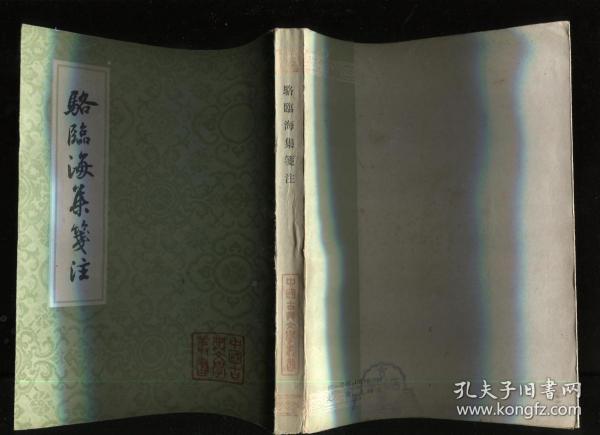 駱臨海集箋注
中國古
典文學
叢書
駱臨海集箋注
中國古典文學叢書
孔夫子旧书网
www.kongfz.com